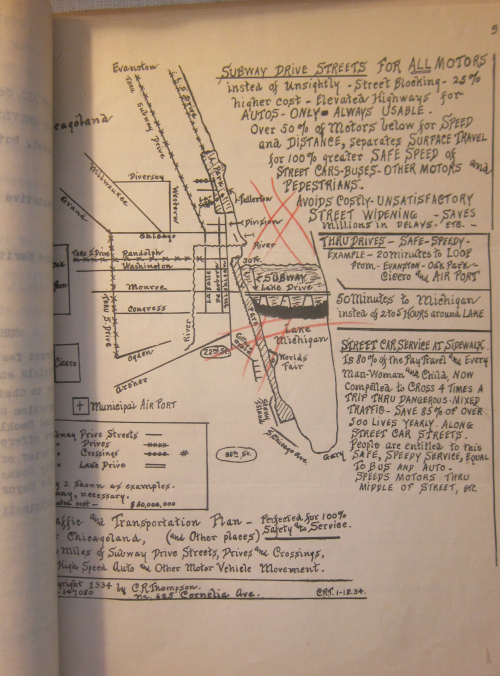 9
SUBWAY DRIVE STREETS FOR ALL MOTORS
insted of Unsightly - Street Blocking - 25%
higher cost - Elevated Highways for
AUTOS - ONLY - ALWAYS USABLE.
Over 50% of Motors below for SPEED
and DISTANCE, separates SURFACE TRAVEL
for 100% greater SAFE SPEED of
STREET CARS-BUSES-OTHER MOTORS and
PEDESTRIANS.
AVOIDS COSTLY-UNSATISFACTORY
STREET WIDENING - SAVES
Millions in DELAYS. ETC.
THRU DRIVES - SAFE-SPEEDY-
EXAMPLE - 20 minutes to LOOP
From - EVANSTON - OAK PARK -
CICERO and AIR PORT
50 Minutes to Michigan
instead of 2 to 5 HOURS around LAKE
STREET CAR SERVICE AT SIDEWALK.
Is 80% of the Pay Travel and Every
Man-Woman and Child, NOW
Compelled to CROSS 4 TIMES A
TRIP THRU DANGEROUS-MIXED
TRAFFIC - SAVE 85% OF OVER
500 LIVES YEARLY. ALONG
STREET CAR STREETS.
People are entitled to this
SAFE, SPEEDY SERVICE, EQUAL
TO BUS AND AUTO -
SPEEDS MOTORS THRU
MIDDLE OF STREET, ETC.
Evanston
Thru Subway Drive
L.S. Drive
cagoland
Milwaukee
Grand
Diversey
Western
Park
Fullerton
Division
Chicago
River
Thru S. Drive
Randolph
Washington
Monroe
Congress
La Salle
Dearborn
Michigan
30 Ft.
SUBWAY
Lake Drive
Thru S. Drive
River
Park
Lake
Michigan
Ogden
22nd St.
Cicero
Archer
Worlds
Fair
Municipal AIR PORT
Gary
S. Chicago Ave.
95th St.
way Drive Streets
" Drives
" Crossings #
" Lake Drive
y 2 shown as examples.
any, necessary.
cost - $60,000,000
affic and Transportation Plan - Perfected for 100%
Safety and Service.
Chicagoland, (and Other places)
Miles of Subway Drive Streets, Drives and Crossings,
High Speed Auto and Other Motor Vehicle Movement.
yright 1934 by C.R. Thompson.
No. 625 Cornelia Ave.
CRT. 1-12.34.